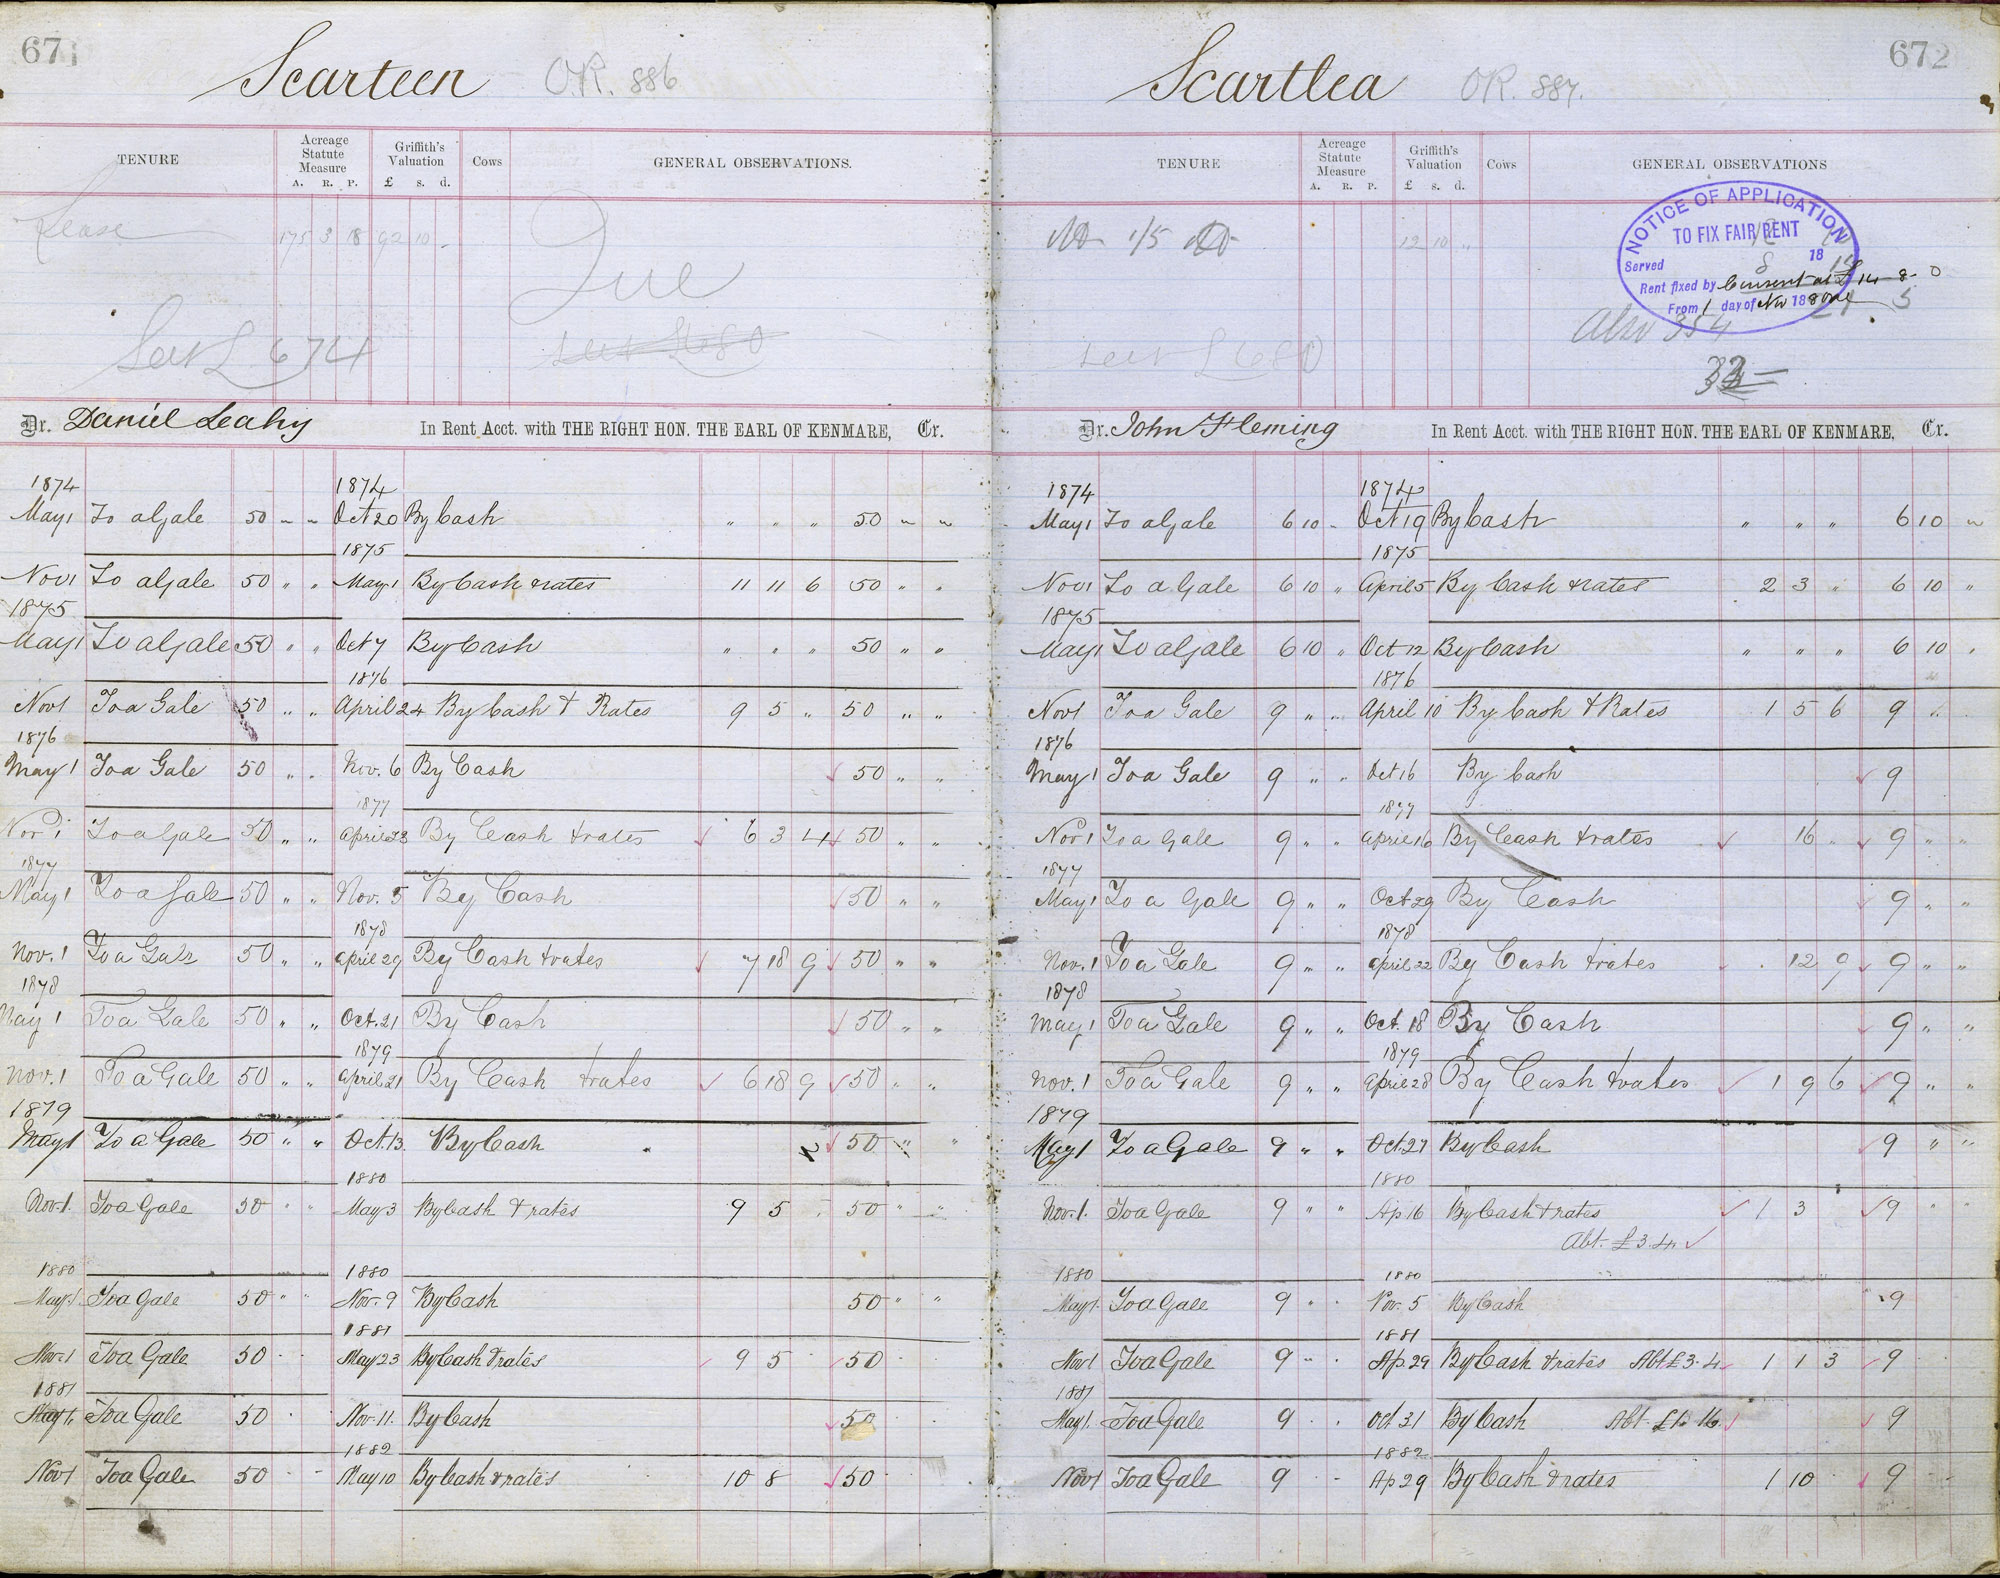 671
Scarteen OR. 886
TENURE Acreage Statute Measure A. R. P. Griffith's Valuation £ s. d. Cows GENERAL OBSERVATIONS.
Lease 175 3 18 92 10 -
674
Dr. Daniel Leahy In Rent Acct. with THE RIGHT HON. THE EARL OF KENMARE, Cr.
1874 1874
May 1 To a Gale 50 " " Oct 20 By Cash " " " 50 " "
1875
Nov 1 To a Gale 50 " " May 1 By Cash & rates 11 11 6 50 " "
1875
May 1 To a Gale 50 " " Oct 7 By Cash " " " 50 " "
1876
Nov 1 To a Gale 50 " " April 24 By Cash & Rates 9 5 " 50 " "
1876
May 1 To a Gale 50 " " Nov. 6 By Cash 50 " "
1877
Nov 1 To a Gale 50 " " April 23 By Cash & rates 6 3 4 50 " "
1877
May 1 To a Gale 50 " " Nov. 5 By Cash 50 " "
1878
Nov. 1 To a Gale 50 " " April 29 By Cash & rates 7 18 9 50 " "
1878
May 1 To a Gale 50 " " Oct. 21 By Cash 50 " "
1879
Nov. 1 To a Gale 50 " " April 21 By Cash & rates 6 18 9 50 " "
1879
May 1 To a Gale 50 " " Oct. 13. By Cash 50 " "
1880
Nov. 1. To a Gale 50 " " May 3 By Cash & rates 9 5 . 50 " "
1880 1880
May 1 To a Gale 50 " " Nov. 9 By Cash 50 " "
1881
Nov. 1 To a Gale 50 . . May 23 By Cash & rates 9 5 50
1881
May 1. To a Gale 50 . Nov. 11. By Cash 50
1882
Nov 1 To a Gale 50 . . May 10 By Cash & rates 10 8 50
672
Scartlea OR. 887.
TENURE Acreage Statute Measure A. R. P. Griffith's Valuation £ s. d. Cows GENERAL OBSERVATIONS
12 10 "
NOTICE OF APPLICATION
TO FIX FAIR RENT
Served 18
Rent fixed by Consent at £14 8. 0
From 1 day of Nov 188
Also 354
680
Dr. John Fleming In Rent Acct. with THE RIGHT HON. THE EARL OF KENMARE, Cr.
1874 1874
May 1 To a Gale 6 10 - Oct 19 By Cash " " " 6 10 "
1875
Nov 1 To a Gale 6 10 " April 5 By Cash & rates 2 3 " 6 10 "
1875
May 1 To a Gale 6 10 " Oct 12 By Cash " " " 6 10 "
1876
Nov 1 To a Gale 9 " " April 10 By Cash & Rates 1 5 6 9 "
1876
May 1 To a Gale 9 " " Oct 16 By Cash 9
1877
Nov 1 To a Gale 9 " " April 16 By Cash & rates 16 . 9 " "
1877
May 1 To a Gale 9 " " Oct 29 By Cash 9 " "
1878
Nov. 1 To a Gale 9 " " April 22 By Cash & rates . 12 9 9 " "
1878
May 1 To a Gale 9 " " Oct. 18 By Cash 9 " "
1879
Nov. 1 To a Gale 9 " " April 28 By Cash & rates 1 9 6 9 " "
1879
May 1 To a Gale 9 " " Oct. 27 By Cash 9 " "
1880
Nov. 1. To a Gale 9 " " Ap 16 By Cash & rates 1 3 9 " "
Abt. £3.4.
1880 1880
May 1. To a Gale 9 " . Nov. 5 By Cash 9
1881
Nov 1 To a Gale 9 " . Ap. 29 By Cash & rates Abt £3.4 1 1 3 9
1881
May 1. To a Gale 9 . . Oct 31 By Cash Abt. £1. 16. 9
1882
Nov 1 To a Gale 9 . . Ap 29 By Cash & rates 1 10 9